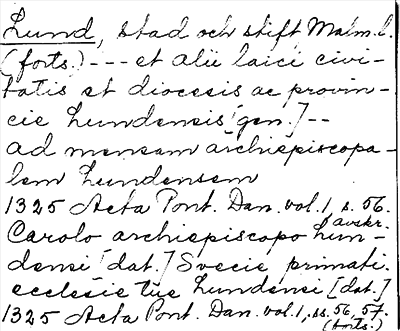 Lund, stad och stift Malm.l.
(forts.) --- et alii laici civi-
tatis et diocesis ac provin-
cie Lundensis [gen.] --
ad mensam archiepiscopa-
lem Lundensem
1325 Acta Pont. Dan. vol. 1, s. 56.
avskr.
Carolo archiepiscopo Lun-
densi [dat.] Svecie primati.
ecclesie tue Lundensi [dat.]
1325 Acta Pont. Dan. vol. 1, ss. 56, 57.
(forts.)